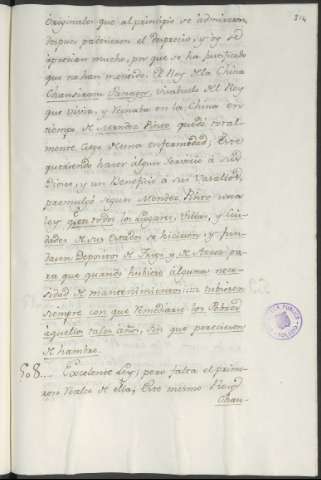 314
Originales que al principio se admiraron,
despues padecieron el desprecio, y oy se
aprecian mucho, por que se ha justificado
que no han mentido. El Rey de la China
Chausiram Panagor, visabuelo del Rey
que vivia, y Reinaba en la China en
tiempo de Mendez Pinto quedó total-
mente ciego de una enfermedad; Este
queriendo hacer algun servicio á sus
Dioses, y un Beneficio á sus Vasallos,
promulgó segun Mendez Pinto una
ley que en todos los Lugares, Villas, y Ciu-
dades de sus Estados se hiciesen, y fun-
dasen Depositos de Trigo, y de Arroz pa-
ra que quando hubiere alguna nece-
sidad de mantenimientos se tubiesen
siempre con que remediarse los Pobres
aquellos tales años, sin que pereciesen
de hambre.
508.... Excelente Ley; pero falta el prime-
ron realce de ella; Este mismo Rey
Chau-